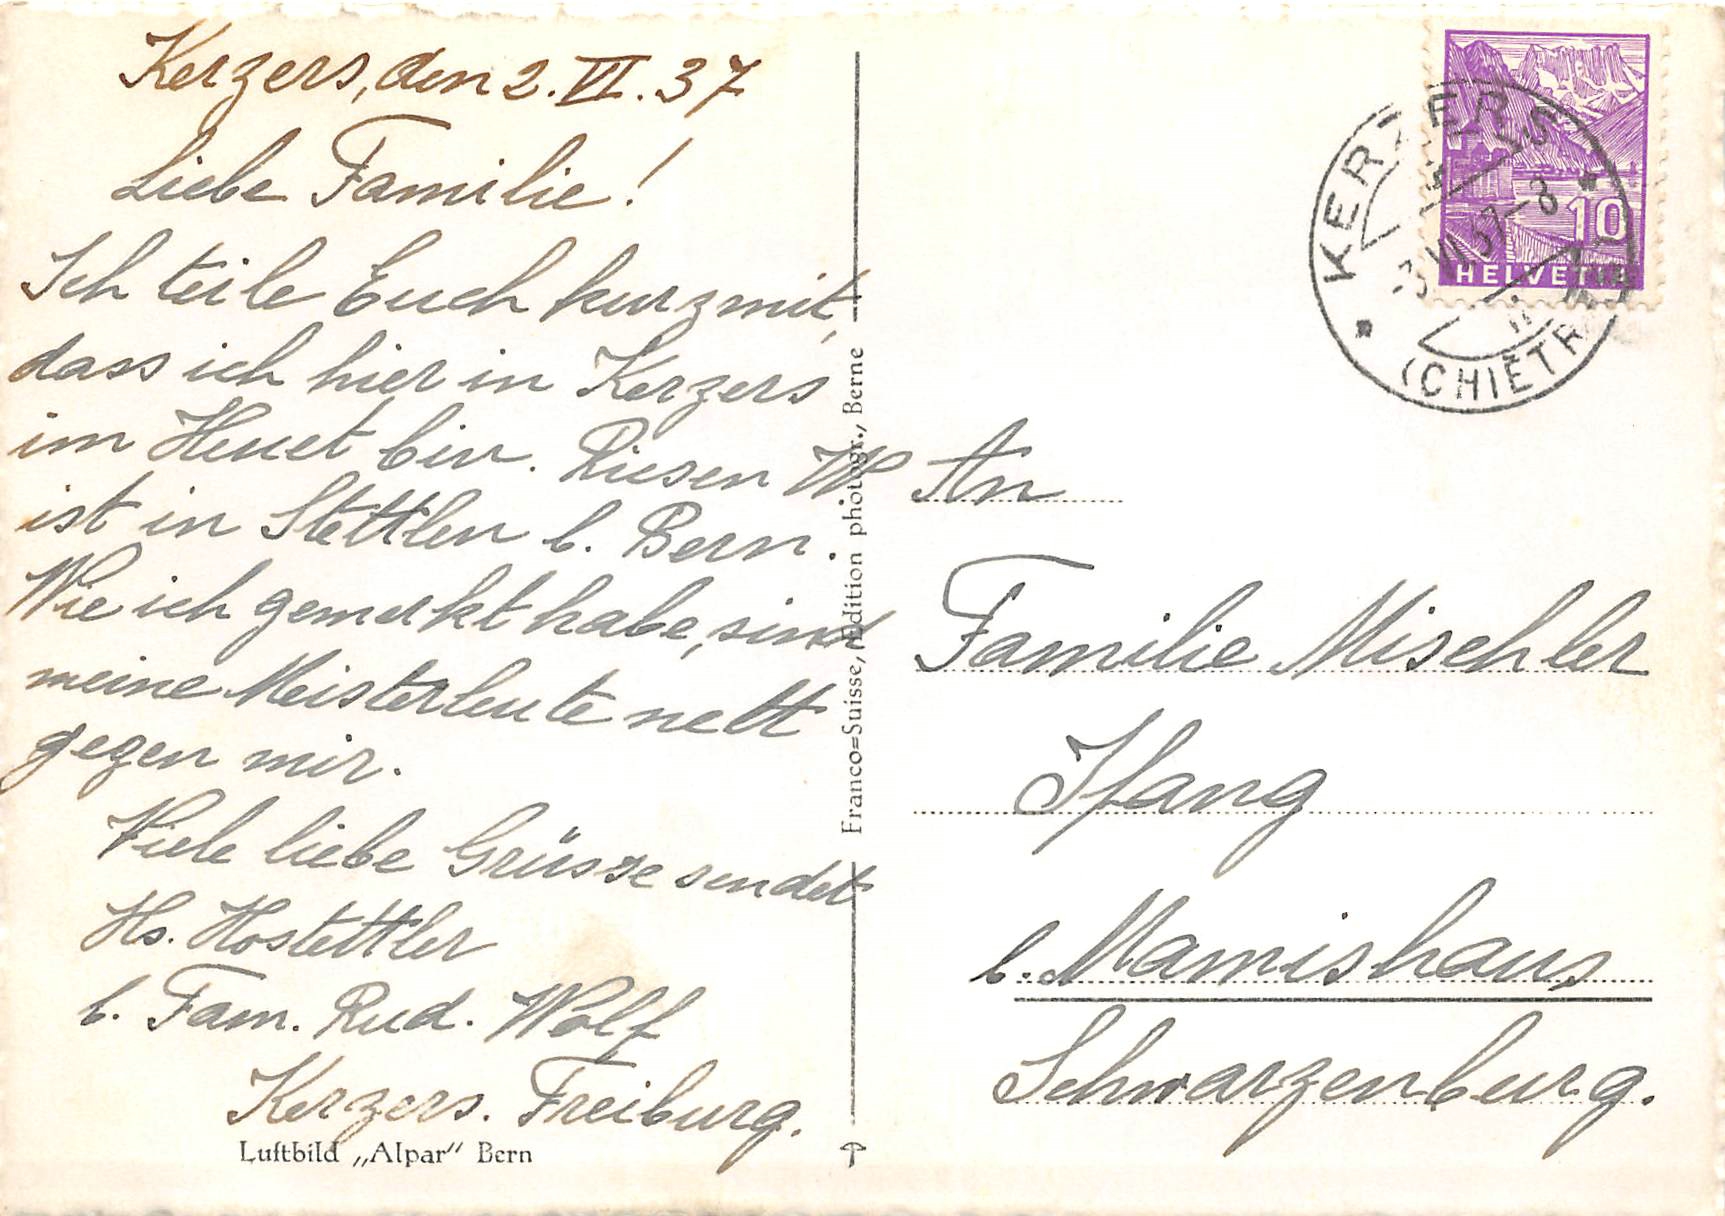 Kerzers, den 2. VI. 37
Liebe Familie!
Ich teile Euch kurz mit,
dass ich hier in Kerzers
im Heuet bin. Riesen W
ist in Stettlen b. Bern.
Wie ich gemerkt habe, sind
meine Meisterleute nett
gegen mir.
Viele liebe Grüsse sendet
Hs. Hostettler
b. Fam. Rud. Wolf
Kerzers. Freiburg.
Luftbild „Alpar" Bern
Franco=Suisse, Edition photogr., Berne
KERZERS
-3.VI.37-8
(CHIÈTRES)
10
HELVETIA
An
Familie Mischler
Ifang
b. Mamishaus
Schwarzenburg.